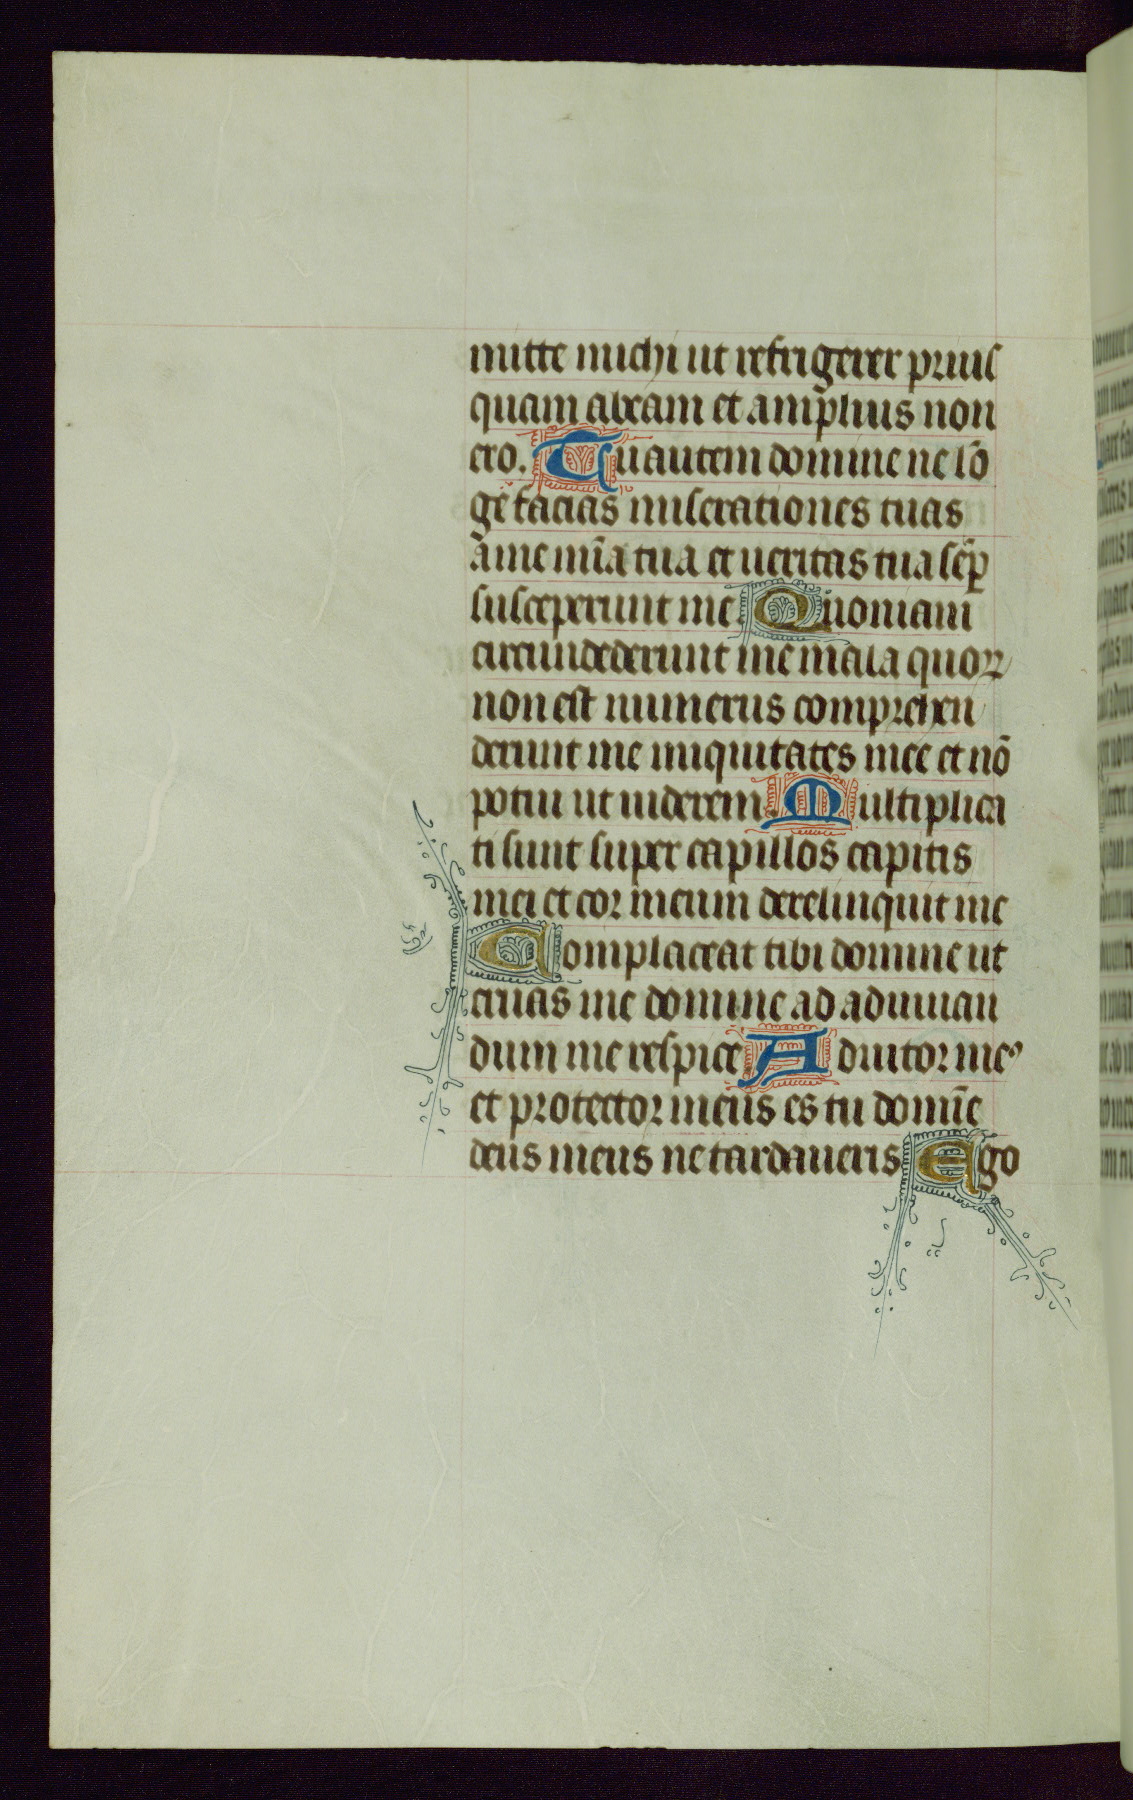 mitte michi ut refrigerer prius
quam abeam et amplius non
ero. Tu autem domine ne lō
ge facias miserationes tuas
a me mīa tua et ueritas tua sēp
susceperunt me. Quoniam
circumdederunt me mala quoꝝ
non est numerus comprehen
derunt me iniquitates mee et nō
potui ut uiderem. Multiplica
ti sunt super capillos capitis
mei et cor meum derelinquit me
Complaceat tibi domine ut
eruas me domine ad adiuuan
dum me respice Adiutor meꝰ
et protector meus es tu domīe
deus meus ne tardaueris Ego